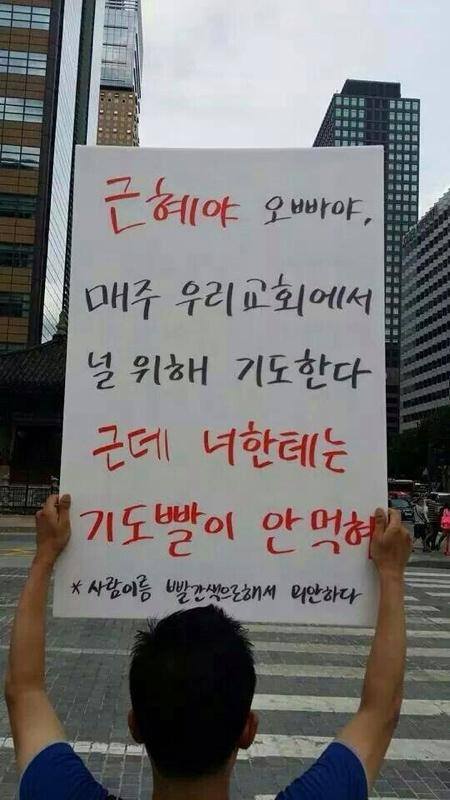 근혜야 오빠야,
매주 우리교회에서
널 위해 기도한다
근데 너한테는
기도빨이 안먹혀
* 사람이름 빨간색으로해서 미안하다